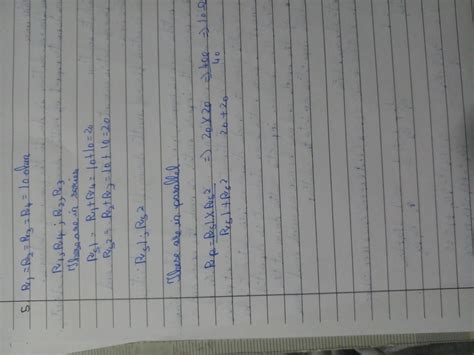 5. R1 = R2 = R3 = R4 = 10 ohm
R1, R4 ; R2, R3
These are in series
Rs1 = R1 + R4 = 10 + 10 = 20
Rs2 = R2 + R3 = 10 + 10 = 20
Rs1, Rs2
These are in parallel
Rp = Rs1 X Rs2 / Rs1 + Rs2 => 20 X 20 / 20 + 20 => 400 / 40 => 10 Ω